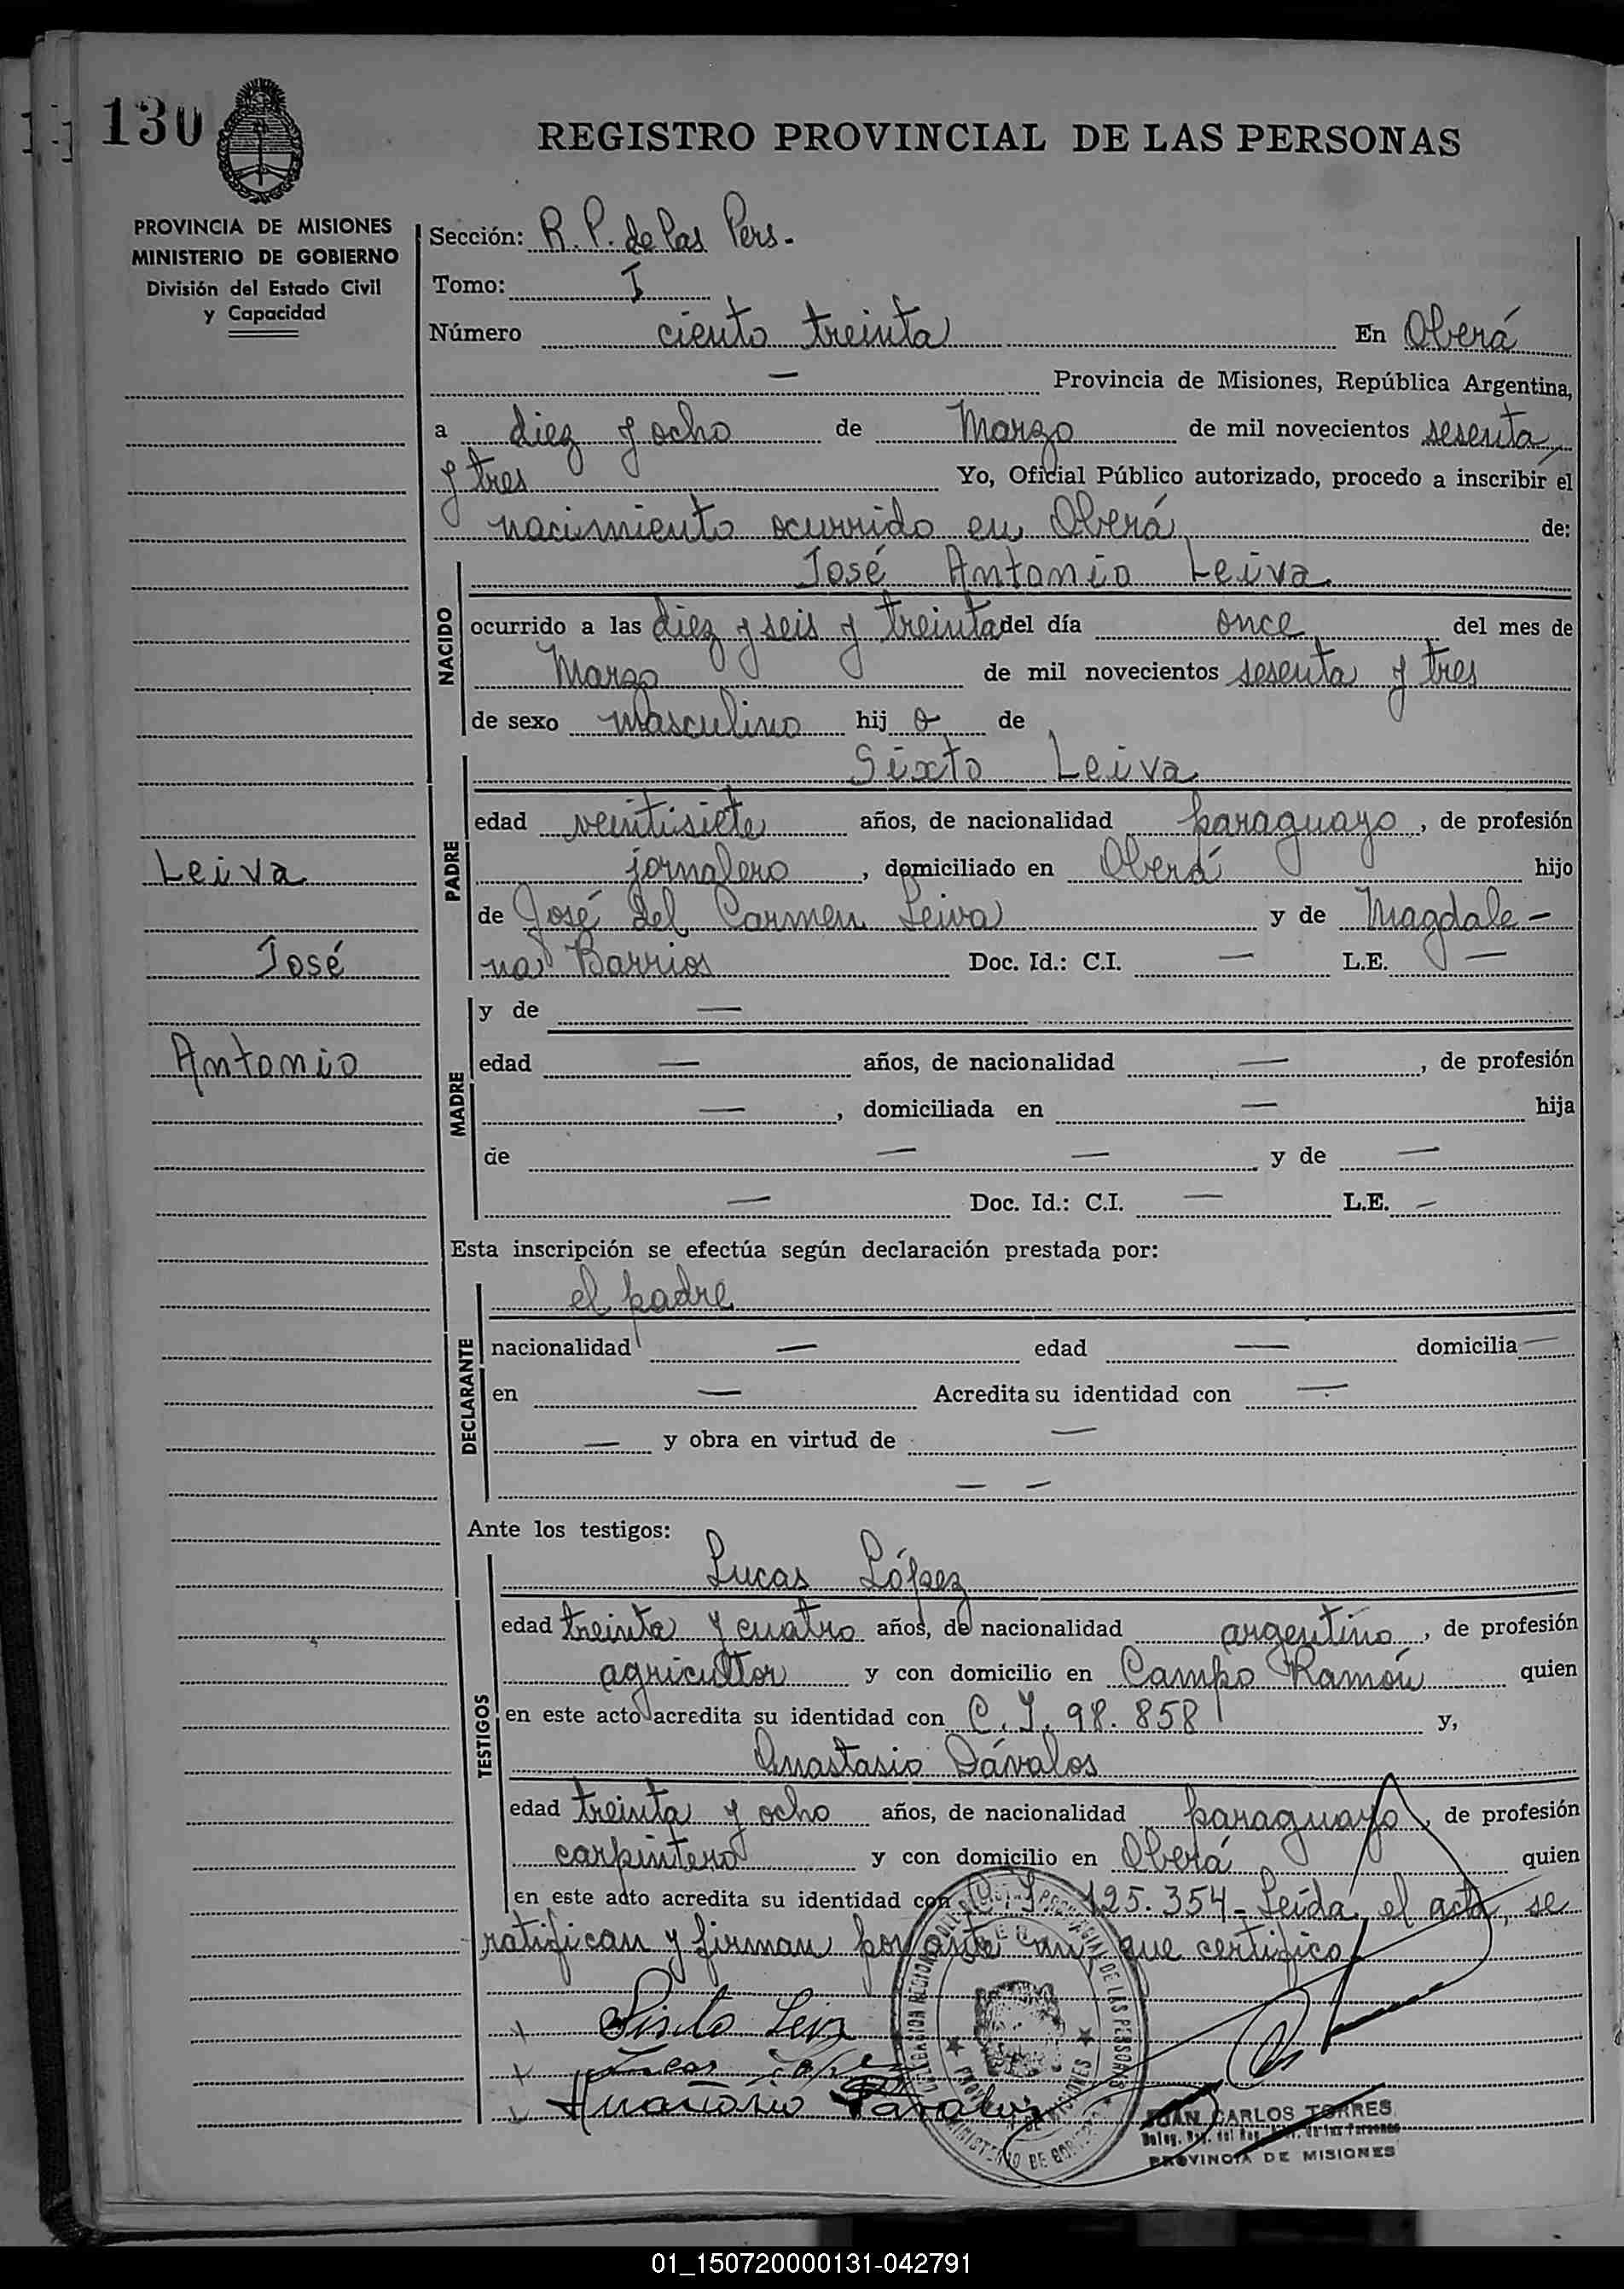 130
REGISTRO PROVINCIAL DE LAS PERSONAS
PROVINCIA DE MISIONES
MINISTERIO DE GOBIERNO
División del Estado Civil
y Capacidad
Leiva
José
Antonio
Sección: R. P. de las Pers.
Tomo: I
Número ciento treinta En Oberá
— Provincia de Misiones, República Argentina,
a diez y ocho de Marzo de mil novecientos sesenta
y tres Yo, Oficial Público autorizado, procedo a inscribir el
nacimiento ocurrido en Oberá de:
NACIDO
José Antonio Leiva
ocurrido a las diez y seis y treinta del día once del mes de
Marzo de mil novecientos sesenta y tres
de sexo masculino hij o de
PADRE
Sixto Leiva
edad veintisiete años, de nacionalidad paraguayo, de profesión
jornalero, domiciliado en Oberá hijo
de José del Carmen Leiva y de Magdale-
na Barrios Doc. Id.: C.I. — L.E. —
MADRE
y de —
edad — años, de nacionalidad —, de profesión
—, domiciliada en — hija
de — — y de —
— Doc. Id.: C.I. — L.E. —
Esta inscripción se efectúa según declaración prestada por:
DECLARANTE
el padre
nacionalidad — edad — domicilia —
en — Acredita su identidad con —
— y obra en virtud de —
— —
Ante los testigos:
TESTIGOS
Lucas López
edad treinta y cuatro años, de nacionalidad argentino, de profesión
agricultor y con domicilio en Campo Ramón quien
en este acto acredita su identidad con C. I. 98.858 y,
Anastasio Dávalos
edad treinta y ocho años, de nacionalidad paraguayo, de profesión
carpintero y con domicilio en Oberá quien
en este acto acredita su identidad con C. I. 125.354 - Leída el acta, se
ratifican y firman por ante mí, que certifico
Sixto Leiva
Lucas López
JUAN CARLOS TORRES
PROVINCIA DE MISIONES
01_150720000131-042791